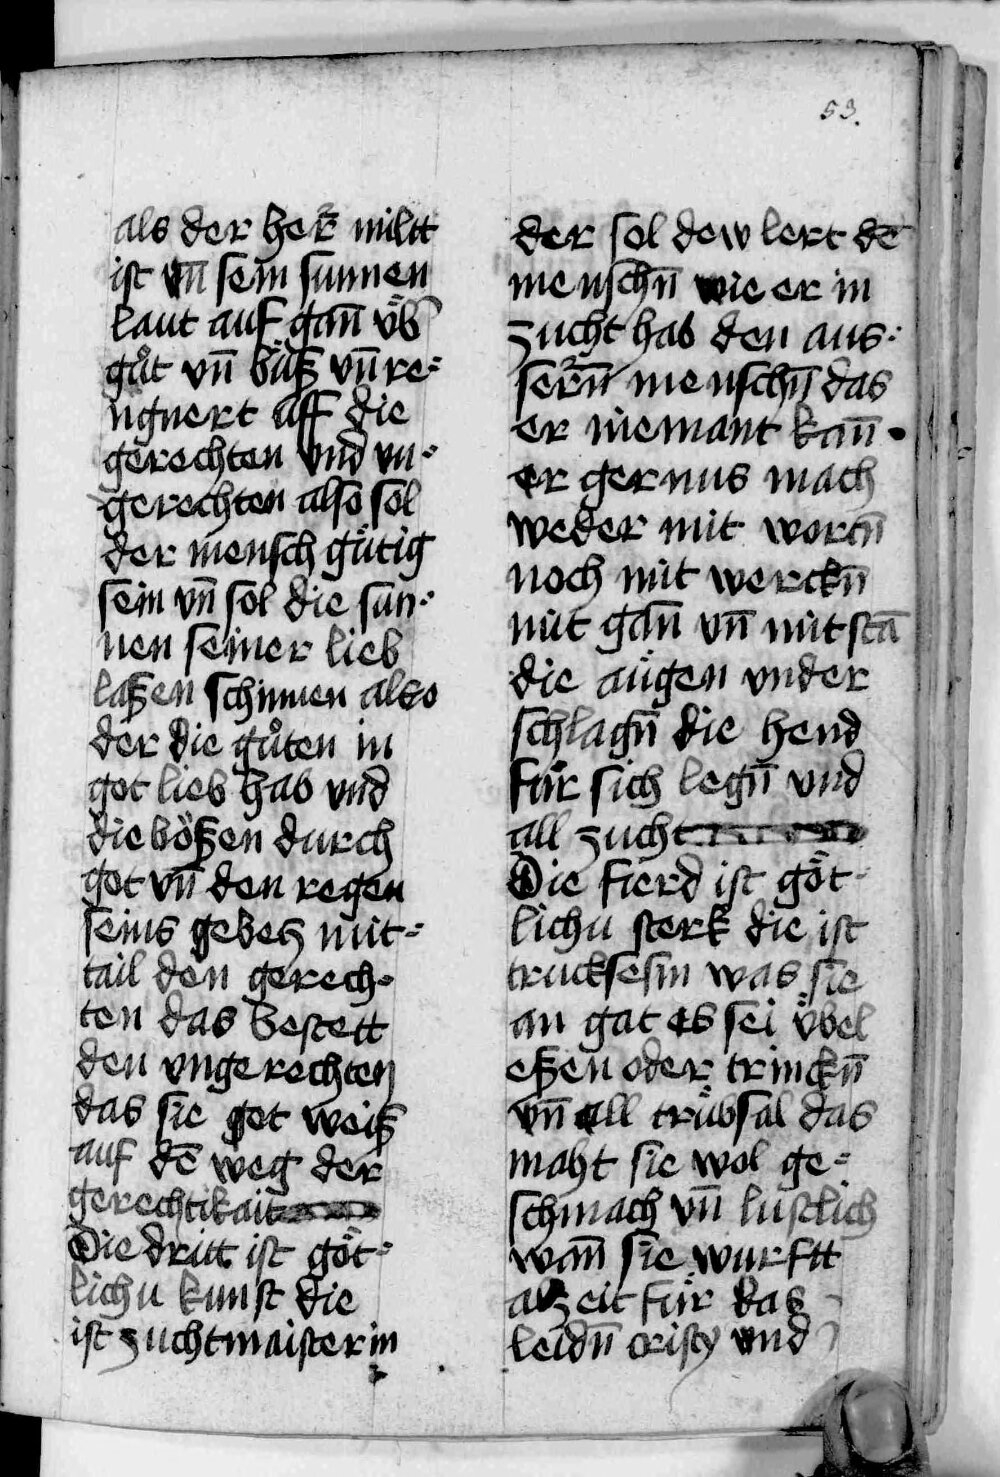 53.
als der her̃ miltt
ist vn̄ sein sunnen
laut auf gan̄ v̈b
gůt vn̄ bäß vn̄ re⸗
ngnert aff die
gerechten vnd vn⸗
gerechten also sol
der mensch gütig
sein vn̄ sol die sun⸗
nen seiner lieb
laßen schinnen also
der die gůten in
got lieb hab vnd
die bößen durch
got vn̄ den regen
seins gebetz mit⸗
tail den gerech⸗
ten das bestett
den vngerechten
das sie got weiß
auf dē weg der
gerechtikait
Die dritt ist göt⸗
lichu kunst die
ist zuchtmaisterin
der sol dew lert dē
menschn̄ wie er in
zucht hab den aus⸗
sern̄ menschn̄ das
er niemant kan̄
ergernus mach
weder mit wortn̄
noch mit werckn̄
mit gan̄ vn̄ mit stā
die augen vnder
schlagn̄ die hend
für sich legn̄ vnd
all zucht
Die fierd ist göt⸗
lichu sterk die ist
trucksesin was sie
an gat es sei v̈bel
eßen oder trinckn̄
vn̄ all trübsal das
maht sie wol ge⸗
schmach vn̄ lustlich
wan̄ sie wurftt
alzeit für das
leidn̄ cristy vnd